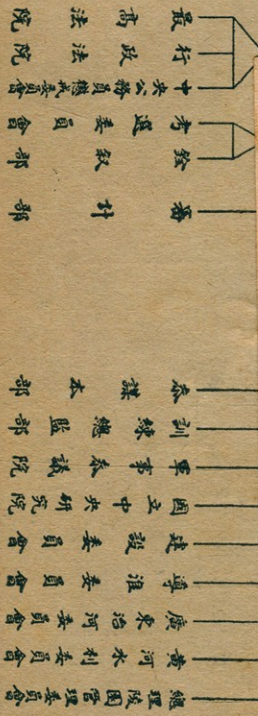 最高法院
行政法院
中央公務員懲戒委員會
考選委員會
銓敘部
審計部
參謀本部
訓練總監部
軍事參議院
國立中央研究院
建設委員會
導淮委員會
廣東治河委員會
黃河水利委員會
總理陵園管理委員會